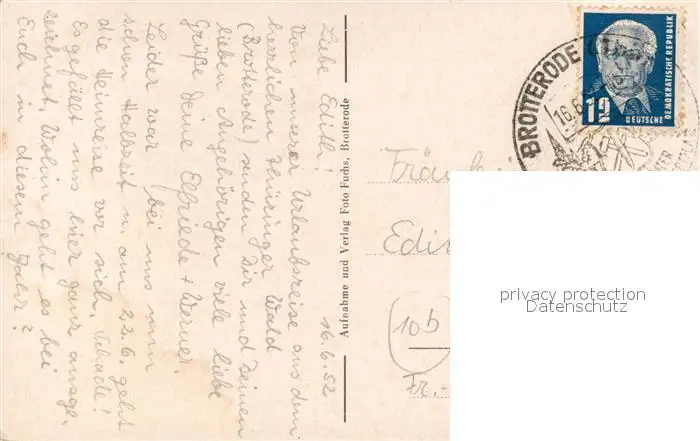 16.6.52
Liebe Edith!
Von unserer Urlaubsreise aus dem
herrlichen Thüringer Wald
(Brotterode) senden Dir und Deinen
lieben Angehörigen viele liebe
Grüße Deine Elfriede + Werner.
Leider war bei uns nun
schon Halbzeit u. am 22.6. geht
die Heimreise vor sich. Schade!
Es gefällt uns hier ganz ausge-
zeichnet. Wohin geht es bei
Euch in diesem Jahr?
Aufnahme und Verlag Foto Fuchs, Brotterode
BROTTERODE
16.6.
12
DEUTSCHE
DEMOKRATISCHE REPUBLIK
Fräulei
Edit
10b
Fr.-
privacy protection
Datenschutz